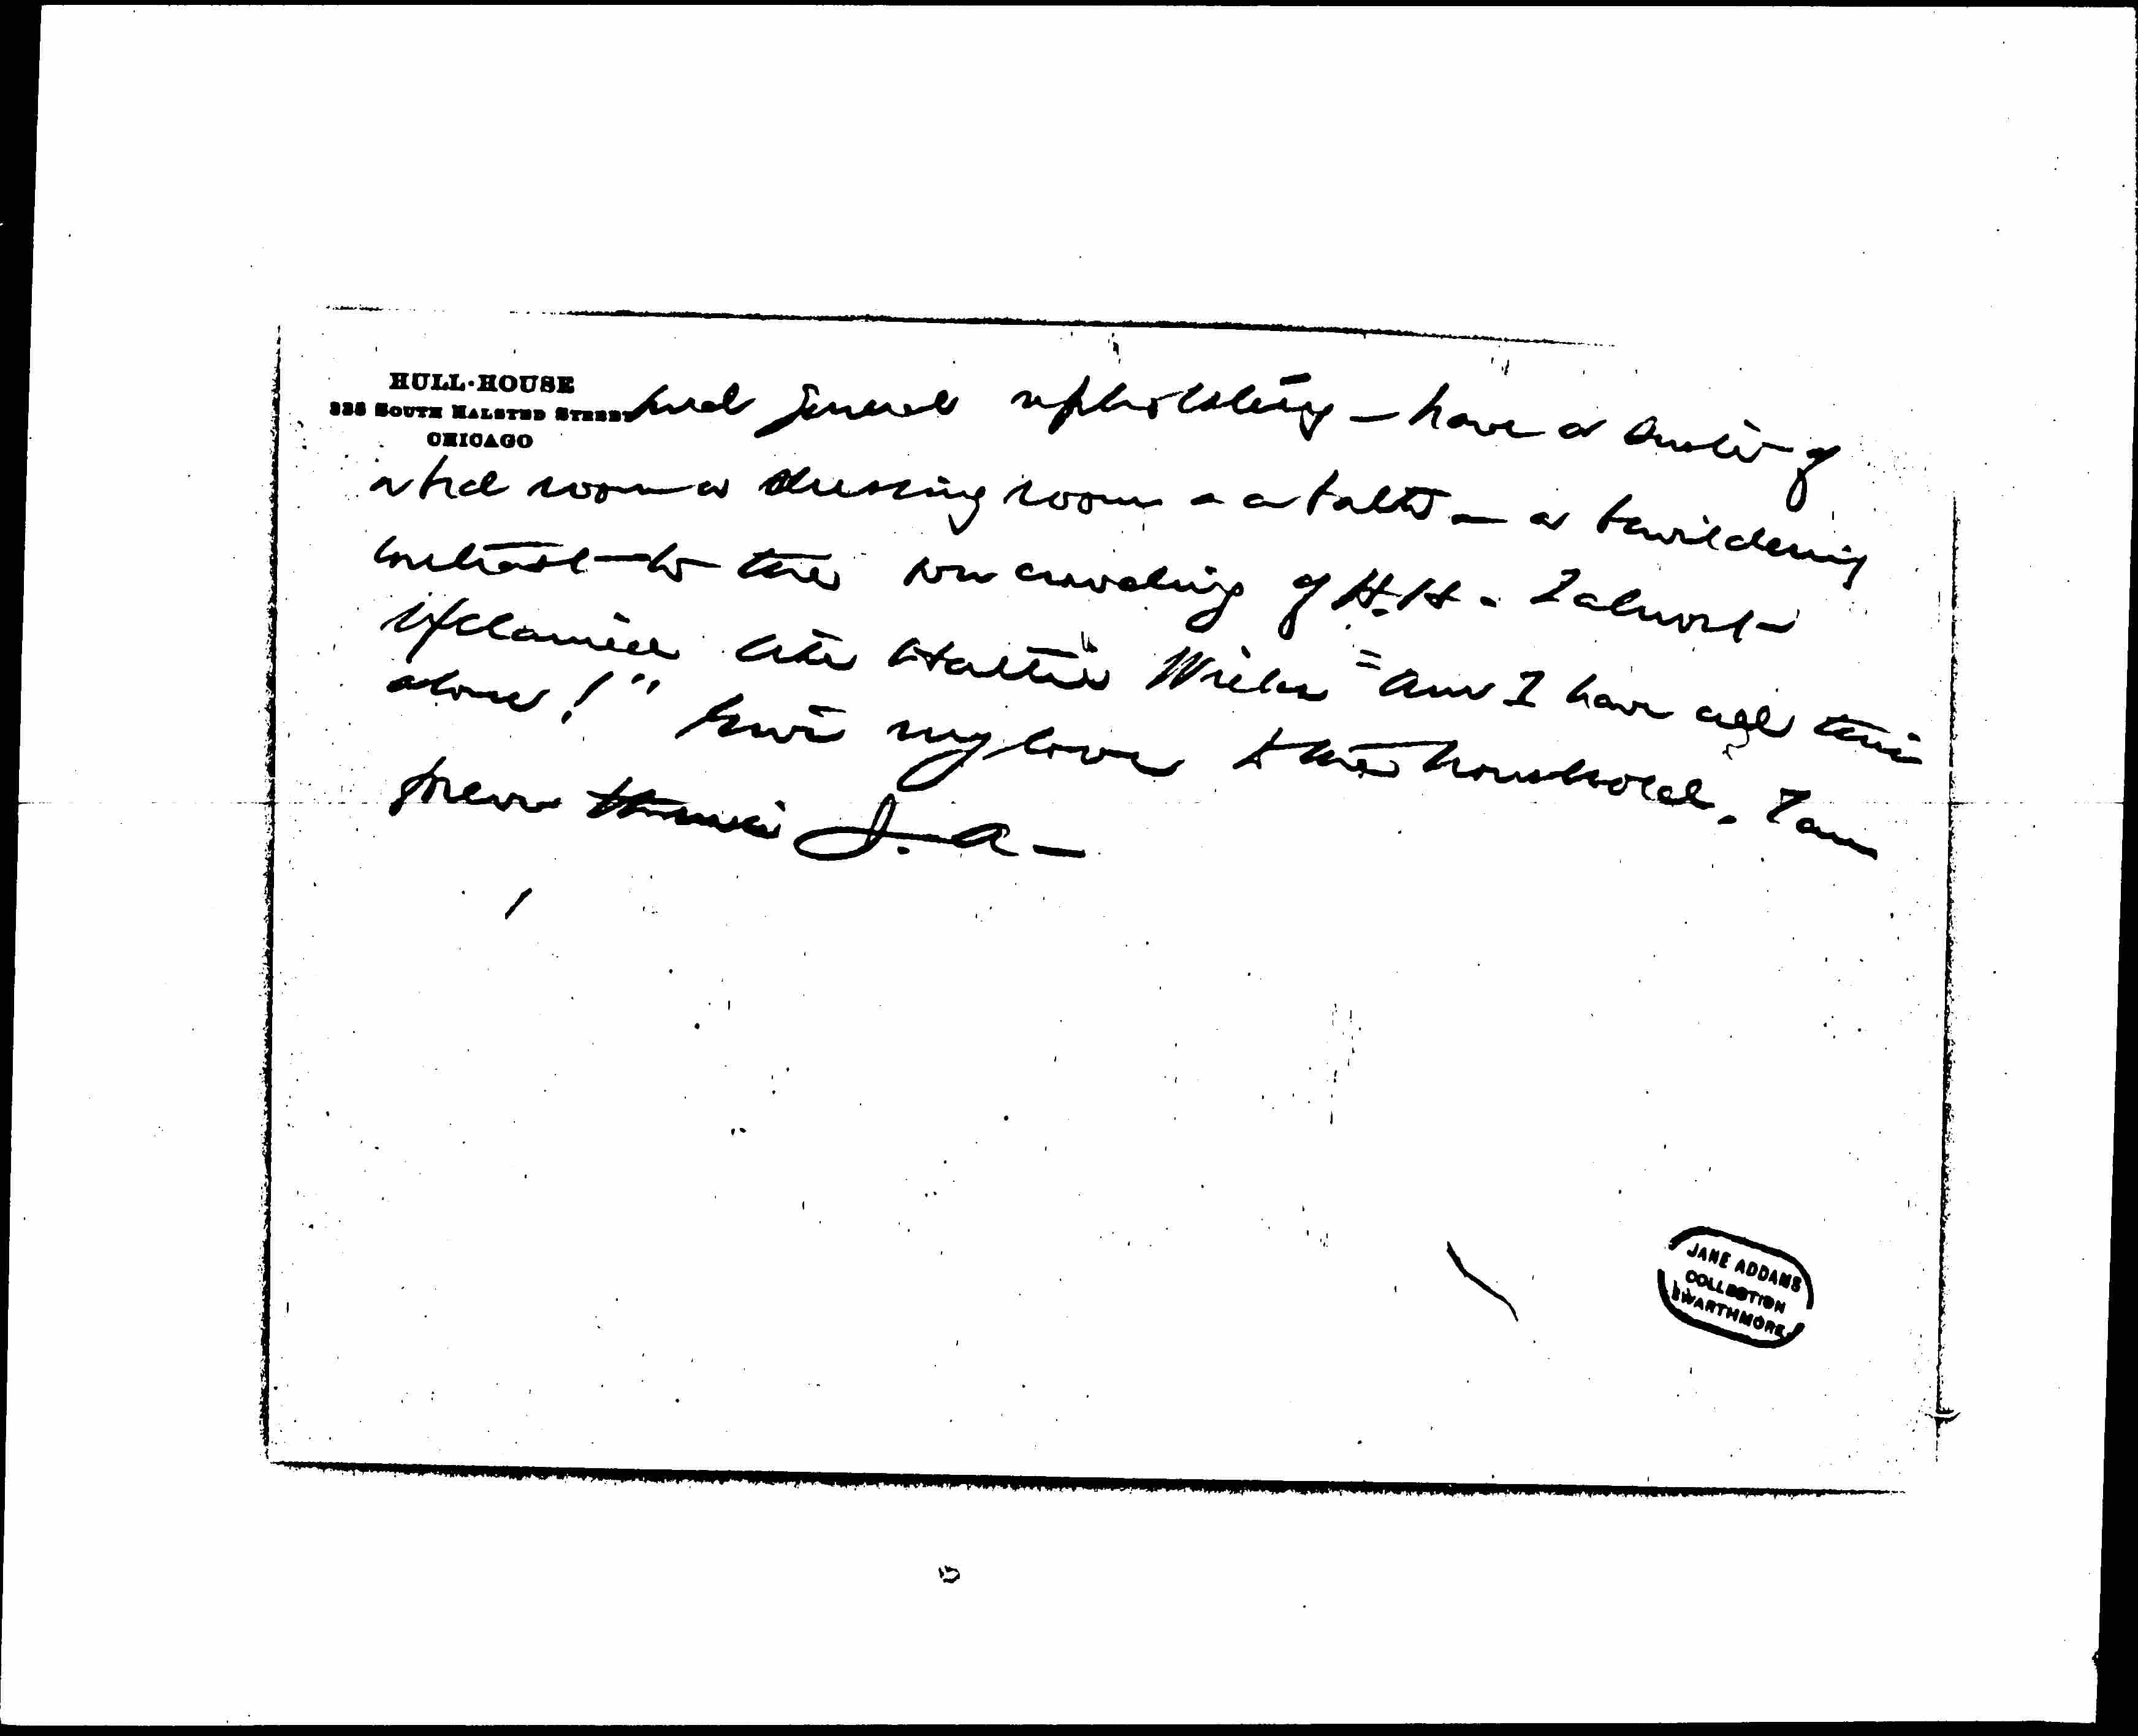 HULL-HOUSE
335 SOUTH HALSTED STREET
CHICAGO
and general upholstery – have a suite of
a bed room a dressing room & a bath – a bewildering
contrast to the crowding of H.H. I almost
exclaimed like Hattie "Am I here all
alone!" Give my love to the household. I am
forever thine J. A –
JANE ADDAMS
COLLECTION
SWARTHMORE